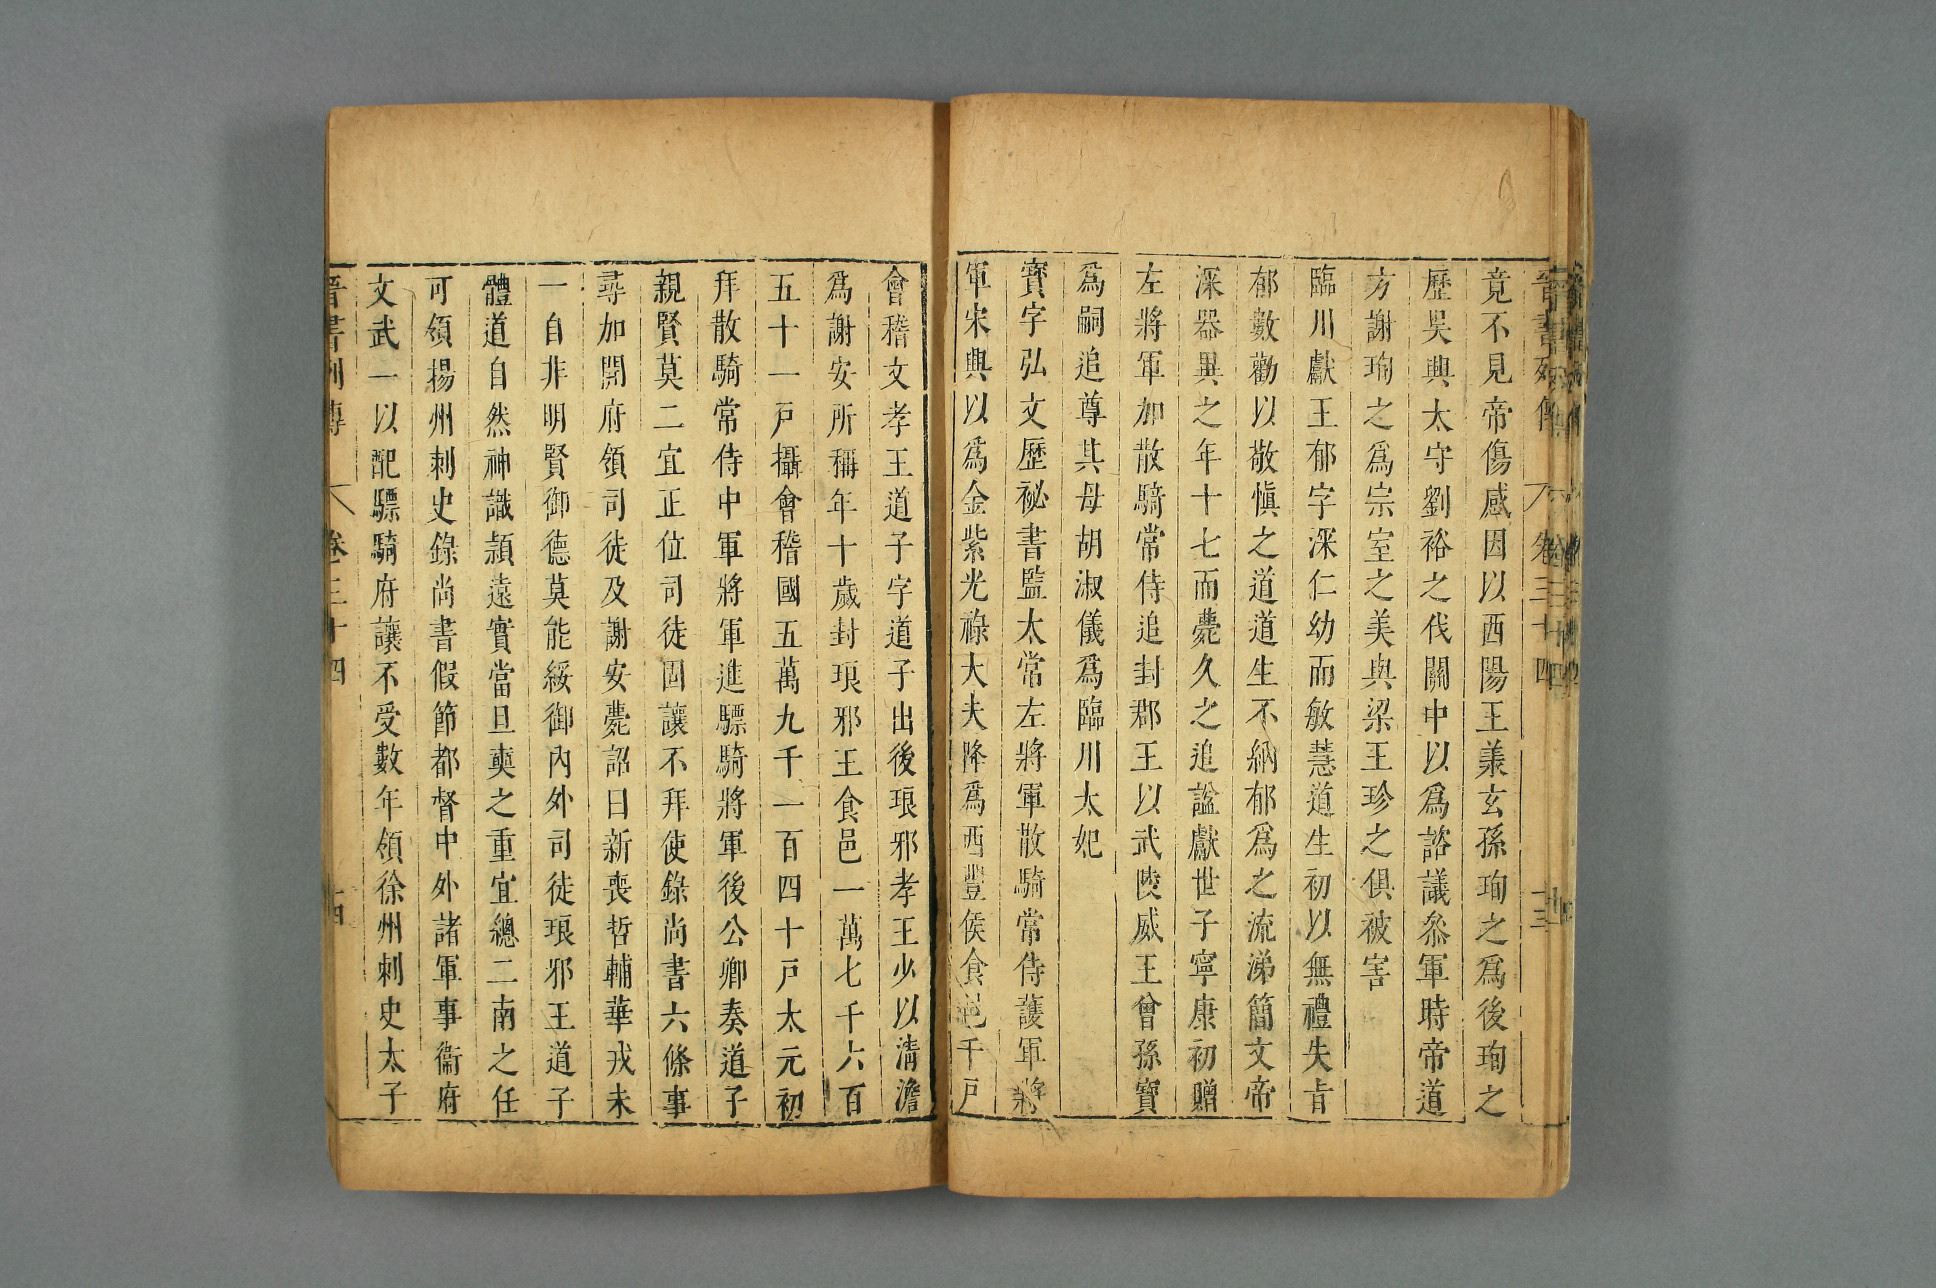 晉書列傳 卷三十四 十三
竟不見帝傷感因以西陽王羕玄孫珣之爲後珣之
歷吳興太守劉裕之伐關中以爲諮議叅軍時帝道
方謝珣之爲宗室之美與梁王珍之俱被害
臨川獻王郁字深仁幼而敏慧道生初以無禮失旨
郁數勸以敬愼之道道生不納郁爲之流涕簡文帝
深器異之年十七而薨久之追諡獻世子寧康初贈
左將軍加散騎常侍追封郡王以武陵威王曾孫寶
爲嗣追尊其母胡淑儀爲臨川太妃
寶字弘文歷祕書監太常左將軍散騎常侍護軍將
軍宋興以爲金紫光祿大夫降爲西豐侯食邑千戸
會稽文孝王道子字道子出後琅邪孝王少以清澹
爲謝安所稱年十歲封琅邪王食邑一萬七千六百
五十一戸攝會稽國五萬九千一百四十戸太元初
拜散騎常侍中軍將軍進驃騎將軍後公卿奏道子
親賢莫二宜正位司徒固讓不拜使錄尚書六條事
尋加開府領司徒及謝安薨詔曰新喪哲輔華戎未
一自非明賢御德莫能綏御內外司徒琅邪王道子
體道自然神識潁遠實當旦奭之重宜總二南之任
可領揚州刺史錄尚書假節都督中外諸軍事衞府
文武一以配驃騎府讓不受數年領徐州刺史太子
晉書列傳 卷三十四 十四